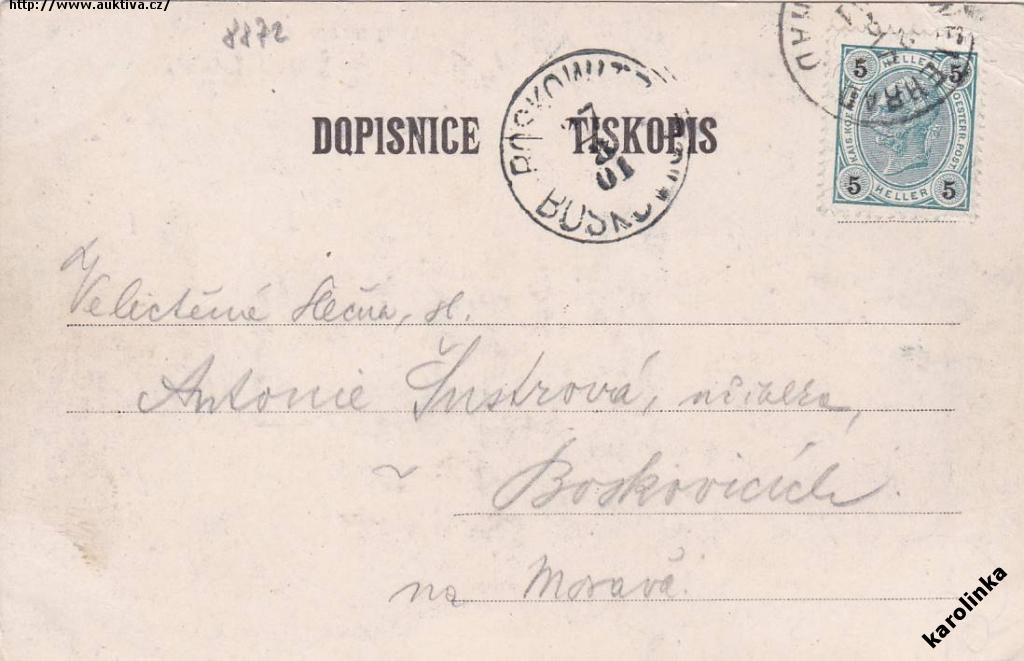 http://www.auktiva.cz/
8872
DOPISNICE TISKOPIS
BOSKOWITZ
01
BOSKO
5 HELLER 5
KAIS. KOE OESTERR. POST
5 HELLER 5
Velectěné slečna, sl.
Antonie Šustrová, učitelka,
v Boskovicích
na Moravě.
karolinka